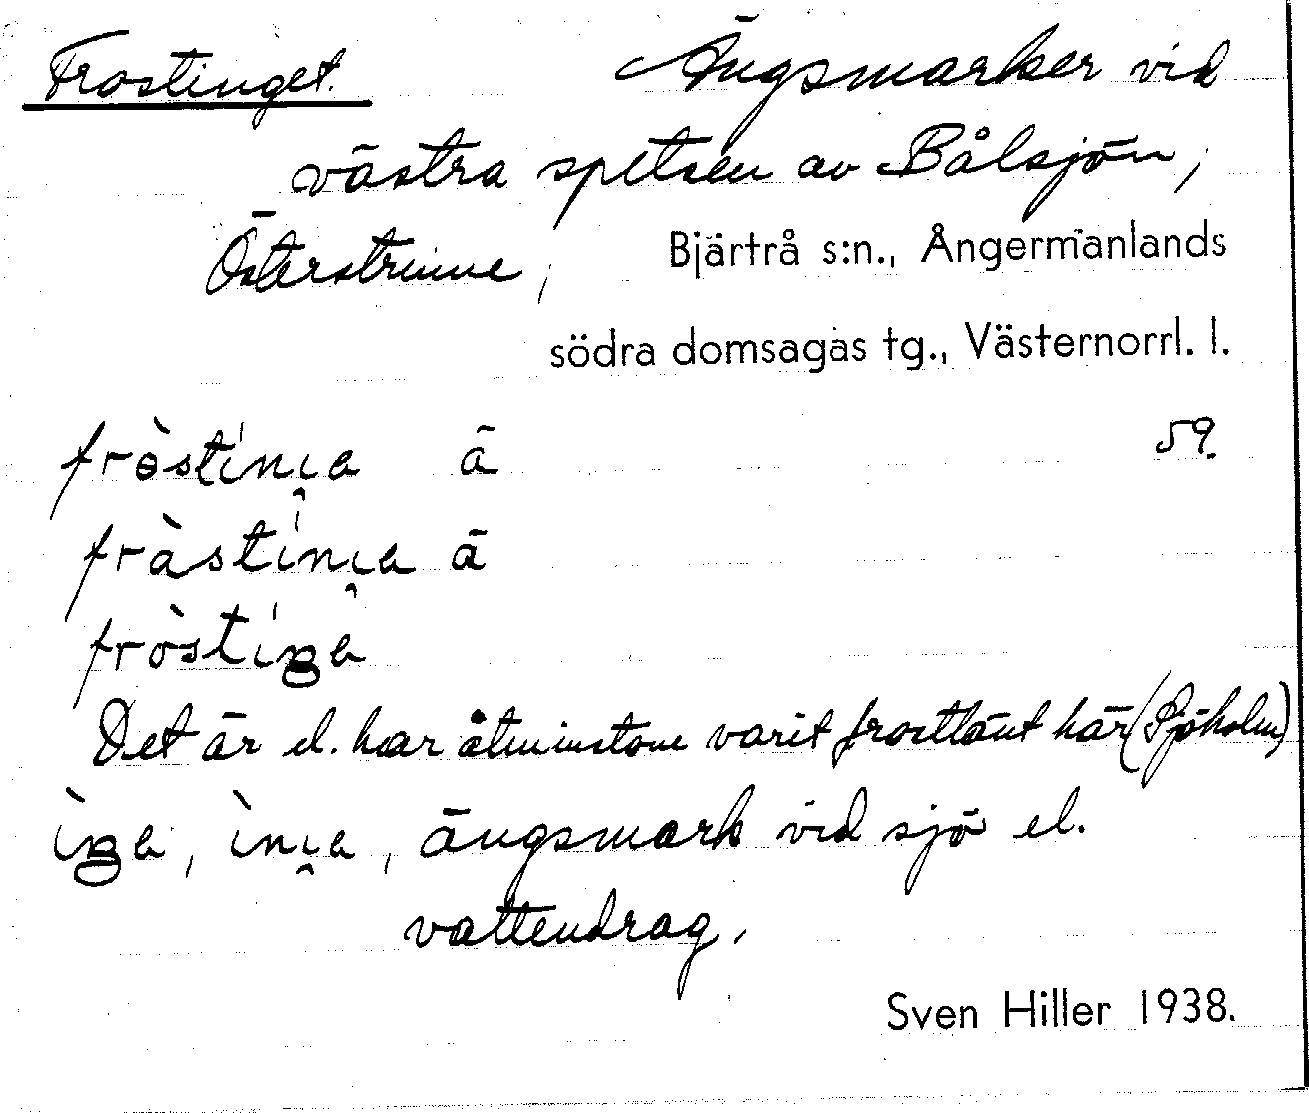 Frostinget. Ängsmarker vid
västra spetsen av Bålsjön,
Österstrinne, Bjärtrå s:n., Ångermanlands
södra domsagas tg., Västernorrl. l.
59.
Det är el. har åtminstone varit frostlänt här (Sjöholm)
ängsmark vid sjö el.
vattendrag.
Sven Hiller 1938.